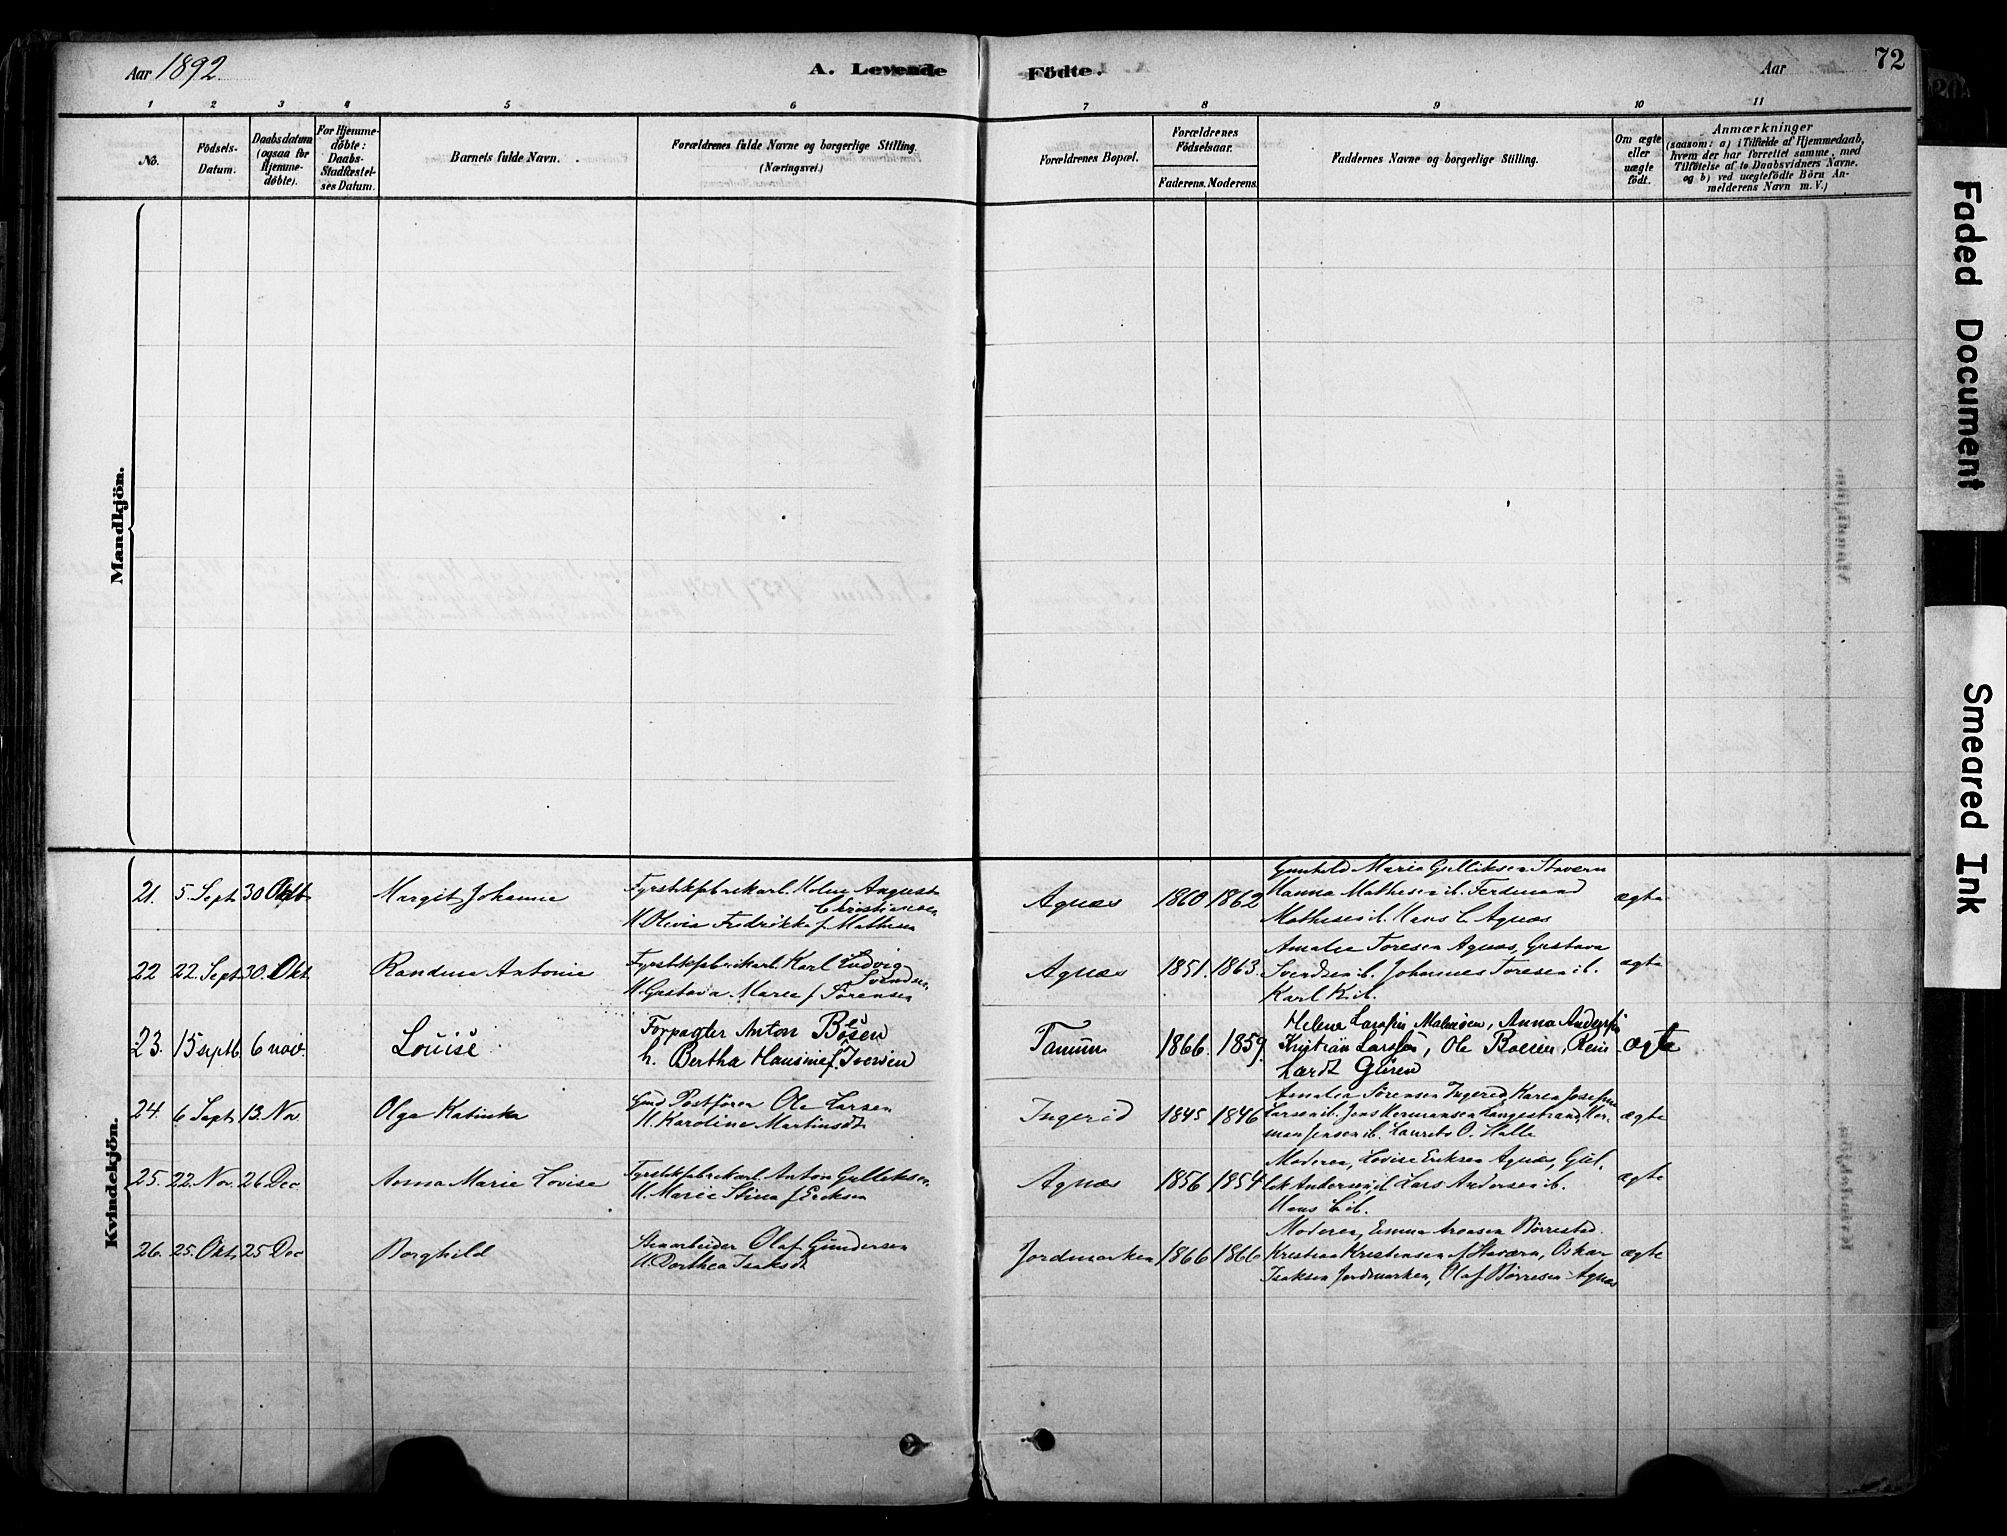 Aar 1892
A. Levende
Födte.
Aar
72
1 2 3 4 5 6 7 8 9 10 11
No.
Födsels-
Datum.
Daabsdatum
(ogsaa for
Hjemme-
döbte).
For Hjemme-
döbte:
Daabs-
Stadfæstel-
ses Datum.
Barnets fulde Navn.
Forældrenes fulde Navne og borgerlige Stilling.
(Næringsvei.)
Forældrenes Bopæl.
Forældrenes
Födselsaar.
Faderens. Moderens.
Faddernes Navne og borgerlige Stilling.
Om ægte
eller
uægte
födt.
Anmærkninger
(saasom: a) i Tilfælde af Hjemmedaab,
hvem der har forrettet samme, med
Tilföielse af to Daabsvidners Navne.
og b) ved uægtefödte Börn An-
melderens Navn m. V.)
Mandkjön.
Kvindekjön.
21. 5. Sept 30 Okt
Margit Johanne
August
Christiansen
H. Olivia Fredrikke f. Mathesen
Agnæs
1860 1862
Gunhild Maria Gulliksen Stavern
Hanna Mathesen ib. Ferdinand
Mathesen ib. Hans C. Agnæs
ægte
22 22. Sept 30. Okt
Randine Antonie
Fyrstikfabrikarb. Karl Ludvig
Svendsen
H. Gustava Marie f. Sörensen
Agnæs
1851. 1863.
Amalie Toresen Agnæs, Gustava
Svendsen ib. Johannes Toresen ib.
Karl K. ib.
ægte
23. 15 septb. 6 nov.
Louise
Forpagter Anton Boesen
h. Bertha Hansine f. Iversen
Tanum
1866. 1859.
Helene Larssen Malmøen, Anna Anderssen
Kristian Larssen, Ole Boesen, Rein
hardt Güren
ægte
24. 6 Sept 13. Nov.
Olga Katinka
Gmd. Postfører Ole Larsen
H. Karoline Martinsdt
Ingerid
1845 1846
Amalia Sörensen Ingerid Karen Josefine
Larsen ib. Jens Hermansen Langestrand, Her-
man Jensen ib. Laurits O. Halle
ægte
25. 22. Nov. 26 Dec
Anna Marie Lovise
Fyrstikfabrikarb. Anton Gulliksen
H. Marie Stina f. Eriksen
Agnæs
1856 1854
Moderen, Lovise Eriksen Agnæs, Gul-
lik Andersen ib. Lars Andersen ib.
Hans C. ib.
ægte
26. 25. Okt. 25 Dec
Borghild
Stenarbeider Olaf Gundersen
H. Dorthea Isaksdt
Jordmarken
1866 1866
Moderen, Emma Aroasen Börrestad.
Kristian Kristensen f. Stavern, Oskar
Isaksen Jordmarken, Olaf Børresen Agnæs
ægte
Faded Document
Smeared Ink